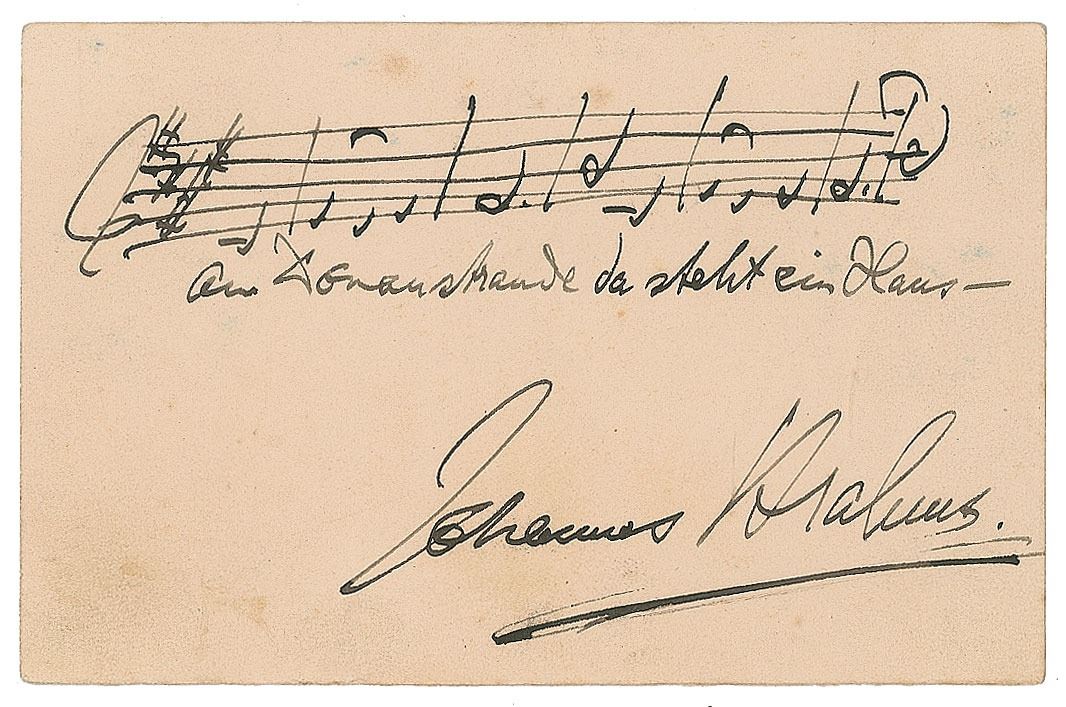 Am Donaustrande da steht ein Haus—
Johannes Brahms.